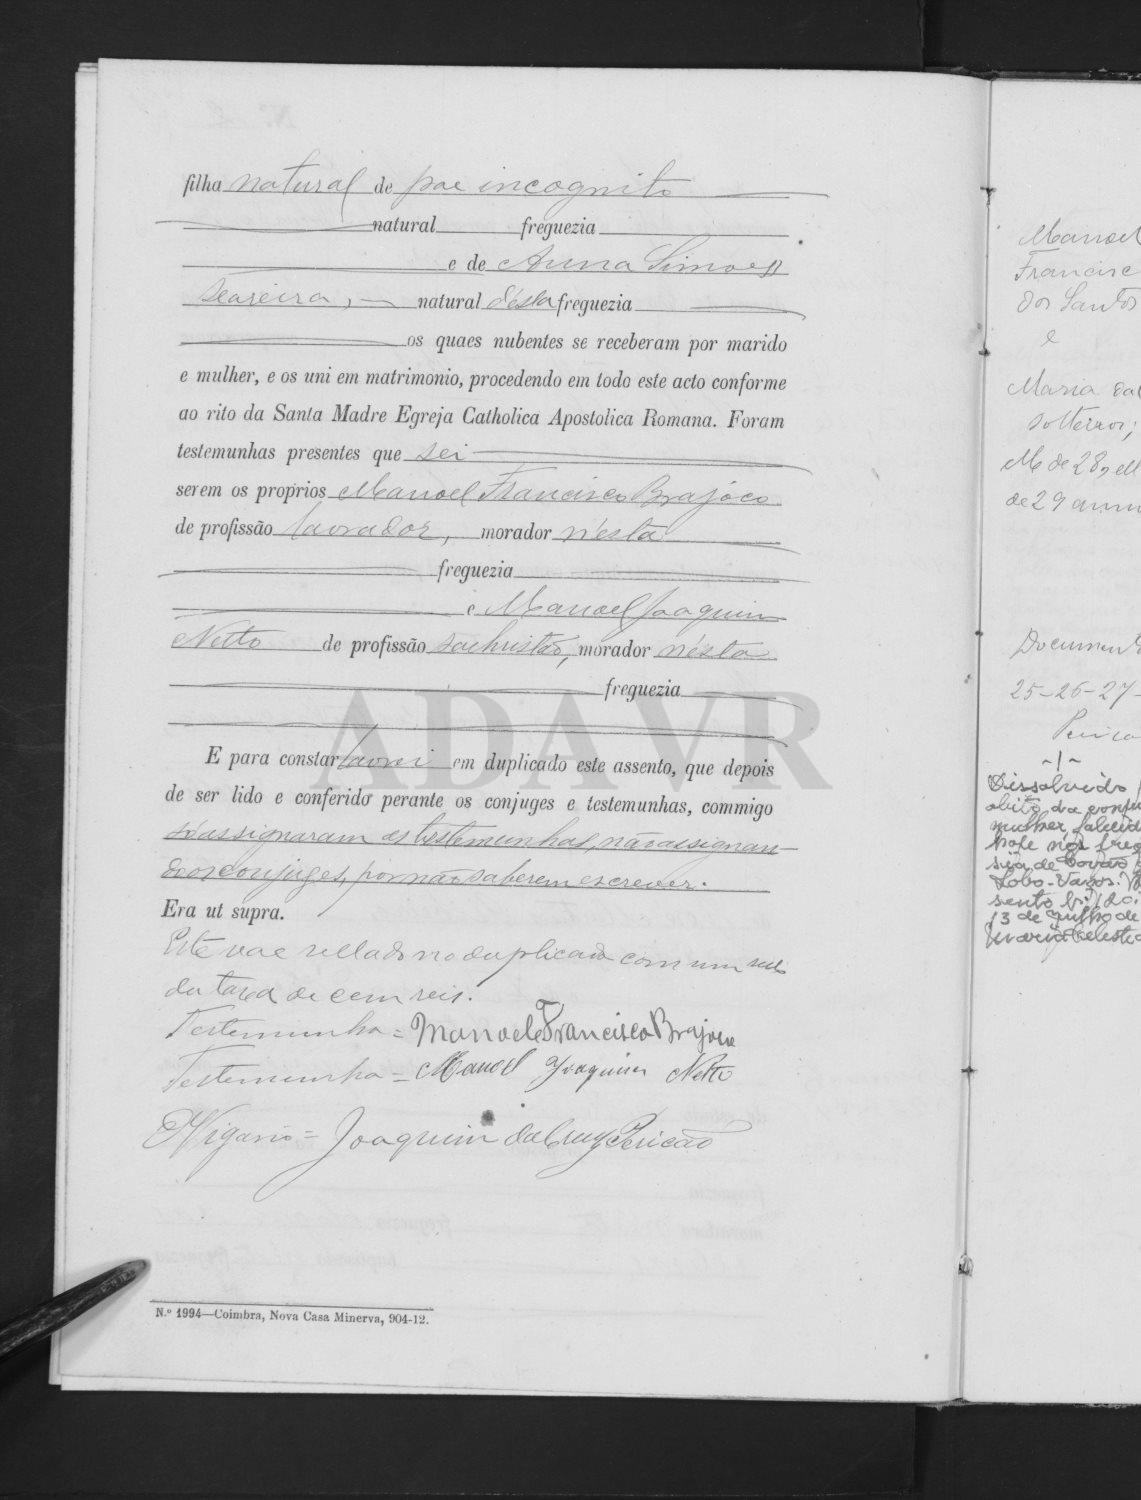 filha natural de pae incognito
natural freguezia
e de Anna Simões
Seareira, natural désta freguezia
os quaes nubentes se receberam por marido
e mulher, e os uni em matrimonio, procedendo em todo este acto conforme
ao rito da Santa Madre Egreja Catholica Apostolica Romana. Foram
testemunhas presentes que sei
serem os proprios Manoel Francisco Brajóco
de profissão lavrador, morador n'esta
freguezia
e Manoel Joaquim
Netto de profissão sachristão, morador nésta
freguezia
E para constar lavrei em duplicado este assento, que depois
de ser lido e conferido perante os conjuges e testemunhas, commigo
só assignaram as testemunhas, não assignan-
do os conjuges, por não saberem escrever.
Era ut supra.
Este vae sellado no duplicado com um sello
da taxa de cem reis.
Testemunha = Manoel Francisco Brajoco
Testemunha = Manoel Joaquim Netto
O Vigario = Joaquim da Cruz Pericão
N.º 1994—Coimbra, Nova Casa Minerva, 904-12.
ADAVR
Manoel
Francisc
dos Santos
e
Maria da
solteiros;
de 28,
de 29 annos
Document
25-26-27-
-1-
Dissolvido
obito da conju
mulher, falecid
hoje na freg
sia de Covão
Lobo-Vagos.
sento
13 de Julho de